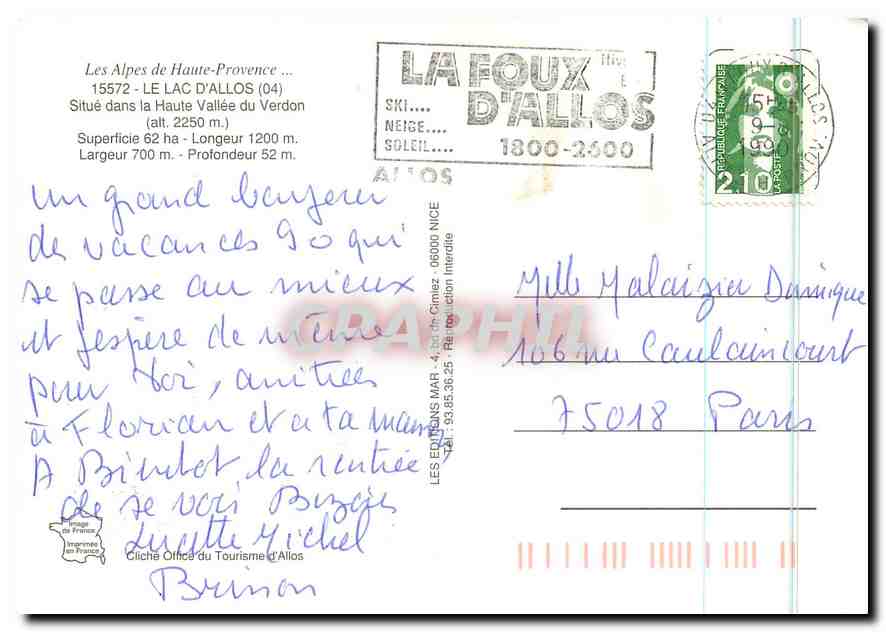 Les Alpes de Haute-Provence ...
15572 - LE LAC D'ALLOS (04)
Situé dans la Haute Vallée du Verdon
(alt. 2250 m.)
Superficie 62 ha - Longeur 1200 m.
Largeur 700 m. - Profondeur 52 m.
LA FOUX
D'ALLOS
SKI....
NEIGE....
SOLEIL....
1800-2600
ALLOS
REPUBLIQUE FRANÇAISE
2,10
LA POSTE
15H
9-
1990
un grand
de vacances 90 qui
se passe au mieux
et j'espère de même
pour toi, amitiés
à Florian et a ta maman
A Bientot la rentrée
de se voir Bizois
Lucette Michel
Brinon
LES EDITIONS MAR - 4, bd de Cimiez - 06000 NICE
Tél : 93.85.36.25 - Reproduction Interdite
GRAPHIL
Melle Malaizier Dominique
106 rue Caulaincourt
75018 Paris
Image
de France
Imprimée
en France
Cliché Office du Tourisme d'Allos